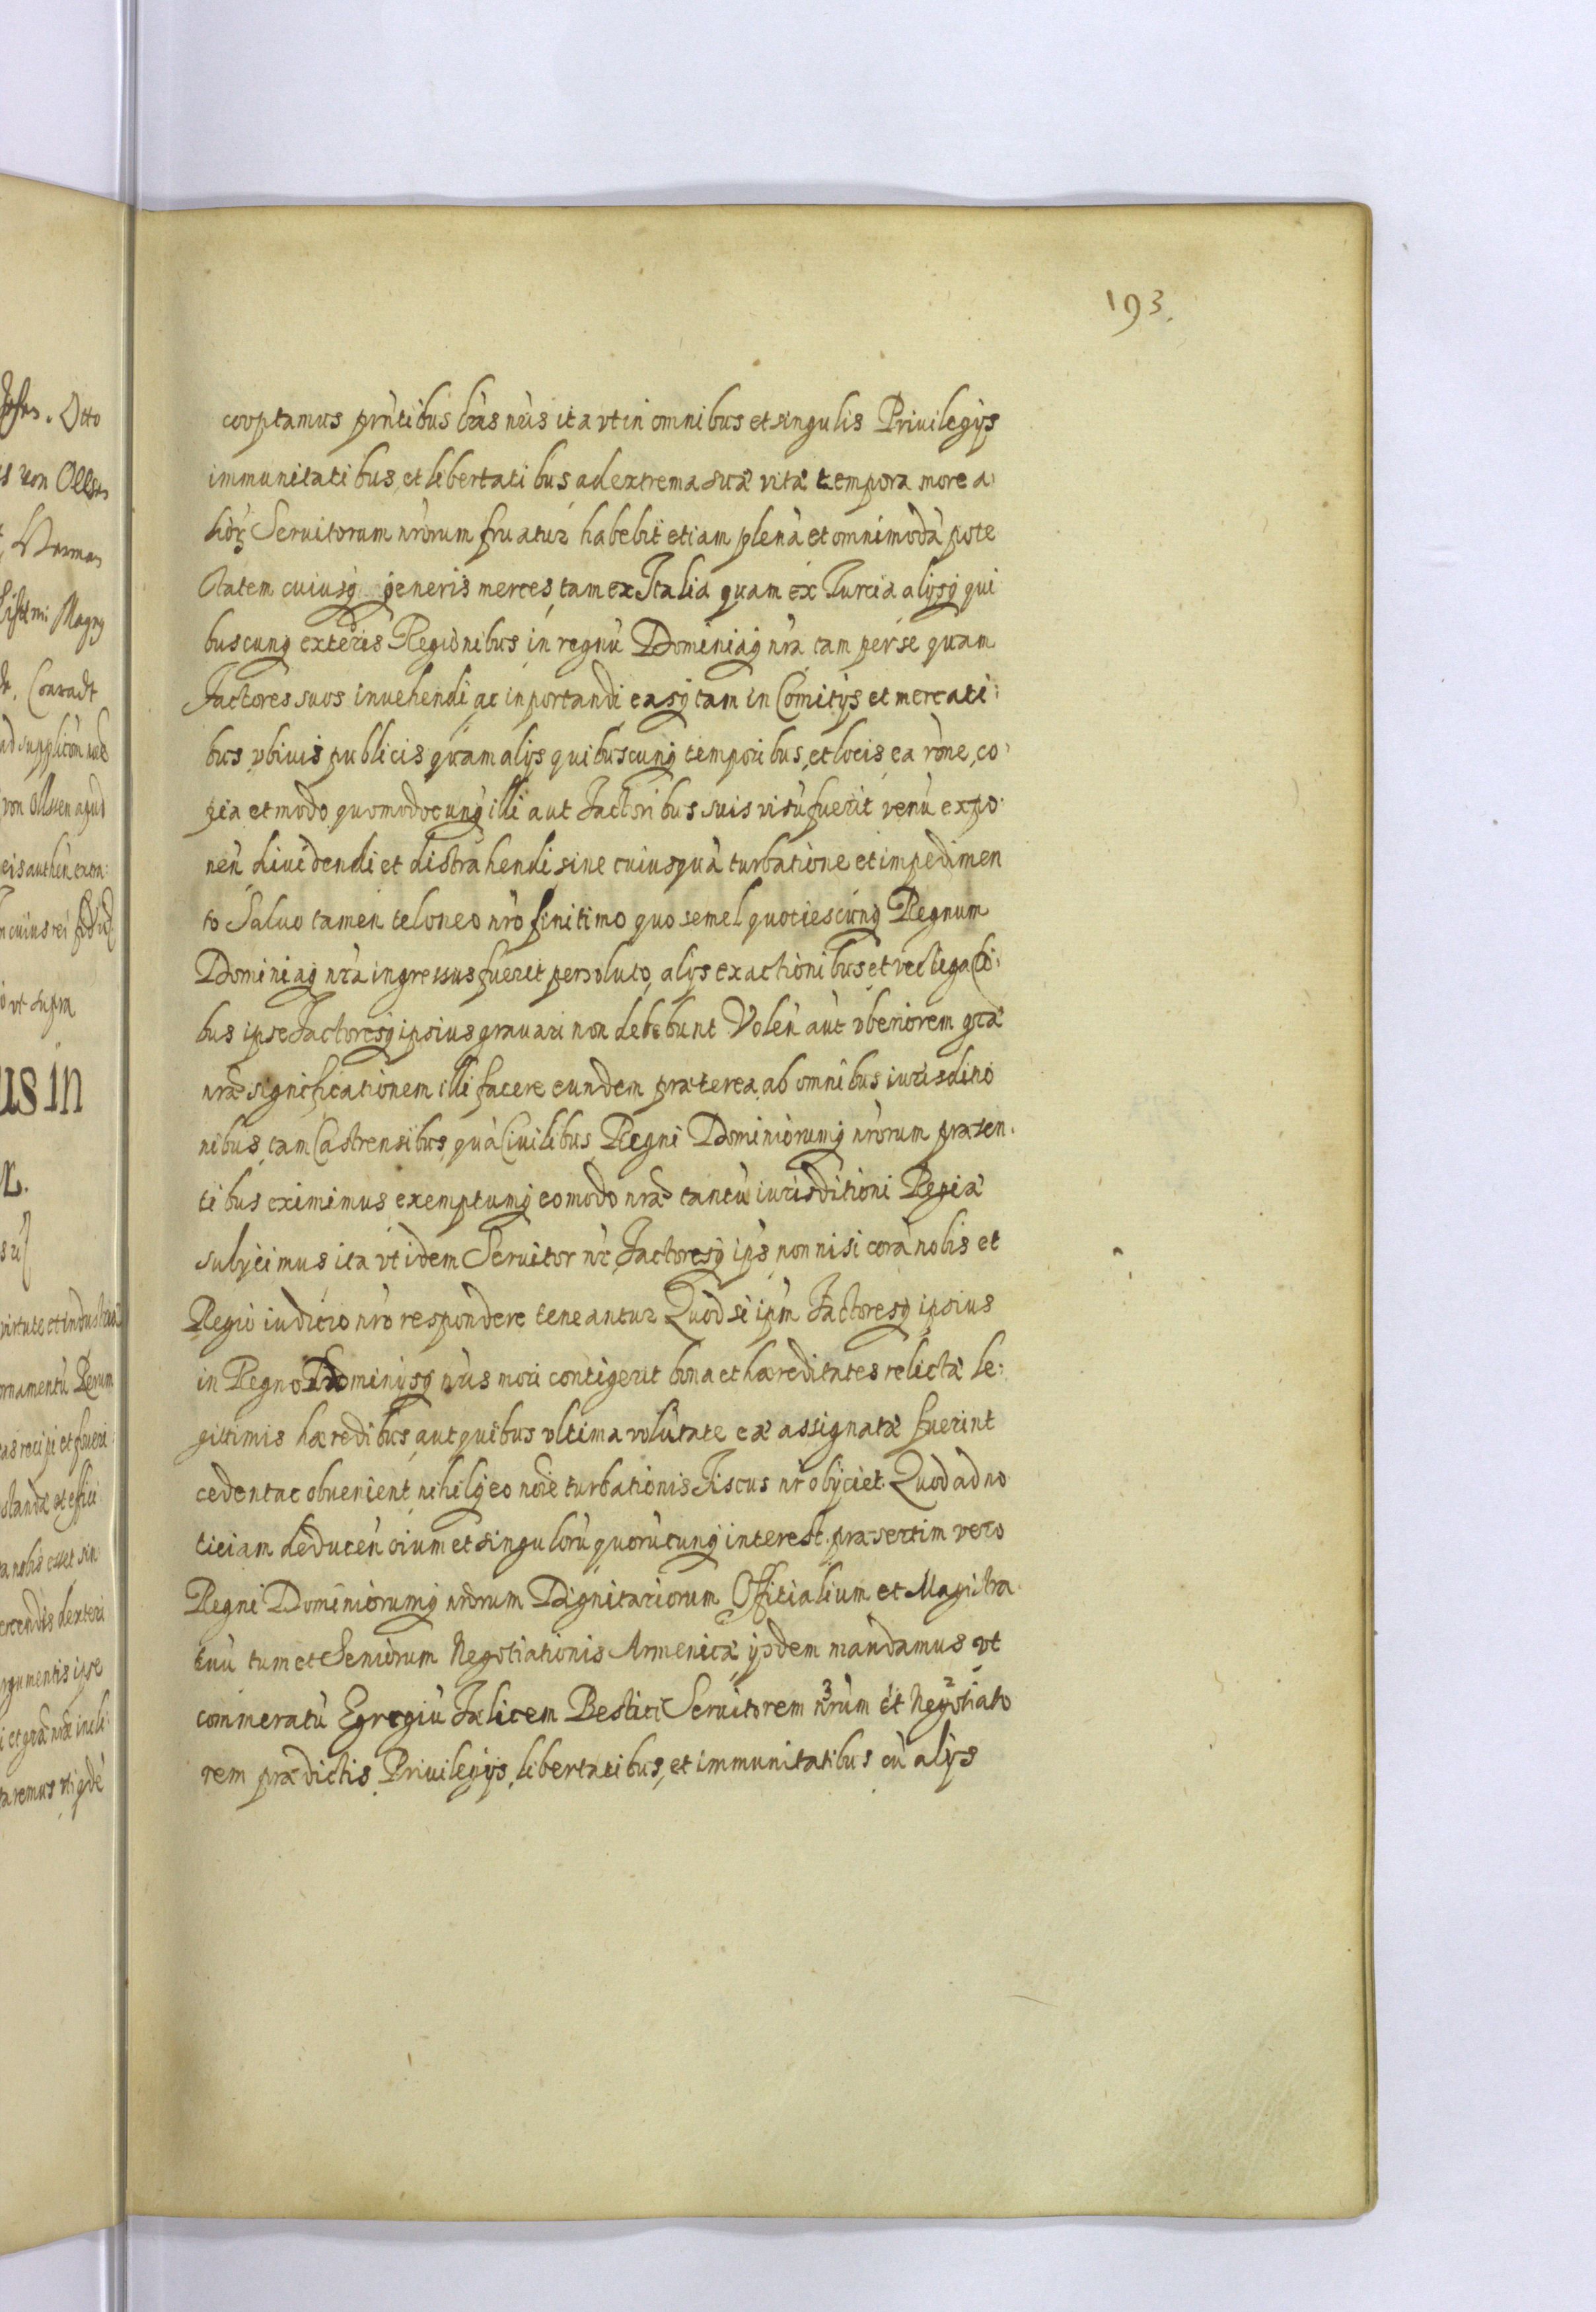 193.
cooptamus pñtibus lr̃as ñris ita vt in omnibus et singulis Priuilegijs
immunitatibus, et libertatibus, ad extrema suæ vitæ tempora more a:
liorꝝ Seruitorum nr̃orum fruatur habebit etiam plenā et omnimodā pote
statem cuiusq; generis merces, tam ex Italia quam ex Turcia alijsq; qui
buscunq; exteris Regionibus in regnū Dominiaq; nr̃a tam per se quam
Factores suos inuehendi ac inportandi easq; tam in Comitijs et mercati:
bus vbiuis publicis quam alijs quibuscunq; temporibus, et locis ea rõne, co:
pia et modo quomodocunq; illi aut Factoribus suis visū fuerit venū expo:
nen̄ diuidendi et distrahendi sine cuiusquā turbatione et impedimen
to Saluo tamen teloneo nr̃o finitimo quo semel quotiescunq; Regnum
Dominiaq; nr̃a ingressus fuerit persoluto, alijs exactionibus et vectigali:
bus ipse Factoresq; ipsius grauari non debebunt Volen̄ aūt vberiorem gr̃æ
nr̃æ significationem illi facere eundem præterea ab omnibus iurisditio
nibus, tam Castrensibus, quā Ciuilibus Regni Dominiorumq; nr̃orum præsen:
tibus eximimus exemptumq; eo modo nr̃æ tantū iurisditioni Regiæ
subijcimus ita vt idem Seruitor nr̃ Factoresq; ips̃ non nisi corā nobis et
Regio iudicio nr̃o respondere teneantur Quod si ipm̃ Factoresq; ipsius
in Regno Dominijsq; nr̃is mori contigerit bona et hæreditates relictæ le:
gittimis hæredibus aut quibus vltima volūtate eæ assignatæ fuerint
cedent ac obuenient, nihilq; eo noĩe turbationis Fiscus nr̃ obijciet. Quod ad no
ticiam deducen̄ oĩum et singulorū quorūcunq; interest, præsertim vero
Regni Dominiorumq; nr̃orum Dignitariorum Officialium et Magistra
tuū tum et Seniorum Negotiationis Armenicæ ijsdem mandamus vt
commeratū Egregiū Fælicem Bestici Seruitorem nr̃um 3 et Negotiato 2
rem prædictis Priuilegijs, libertatibus, et immunitatibus cū alijs